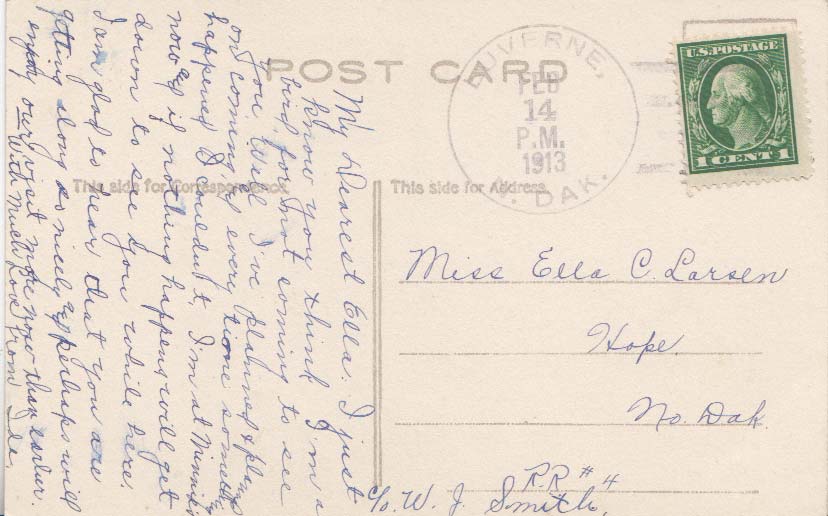 POST CARD
This side for Correspondence.
This side for Address.
LUVERNE,
FEB
14
P.M.
1913
N. DAK.
U.S. POSTAGE
1 CENT 1
My Dearest Ella. I just
know you think I'm a
bird for not coming to see
you. Well I've planned & plan
on coming & every time something
happened I couldn't, I'm at Minnie's
now & if nothing happens will get
down to see you while here.
I am glad to hear that you are
getting along so nicely & perhaps will
enjoy our visit more now than earlier.
With much love from Ida.
Miss Ella C. Larsen
Hope.
No. Dak.
R.R #4
c/o W. J. Smith.